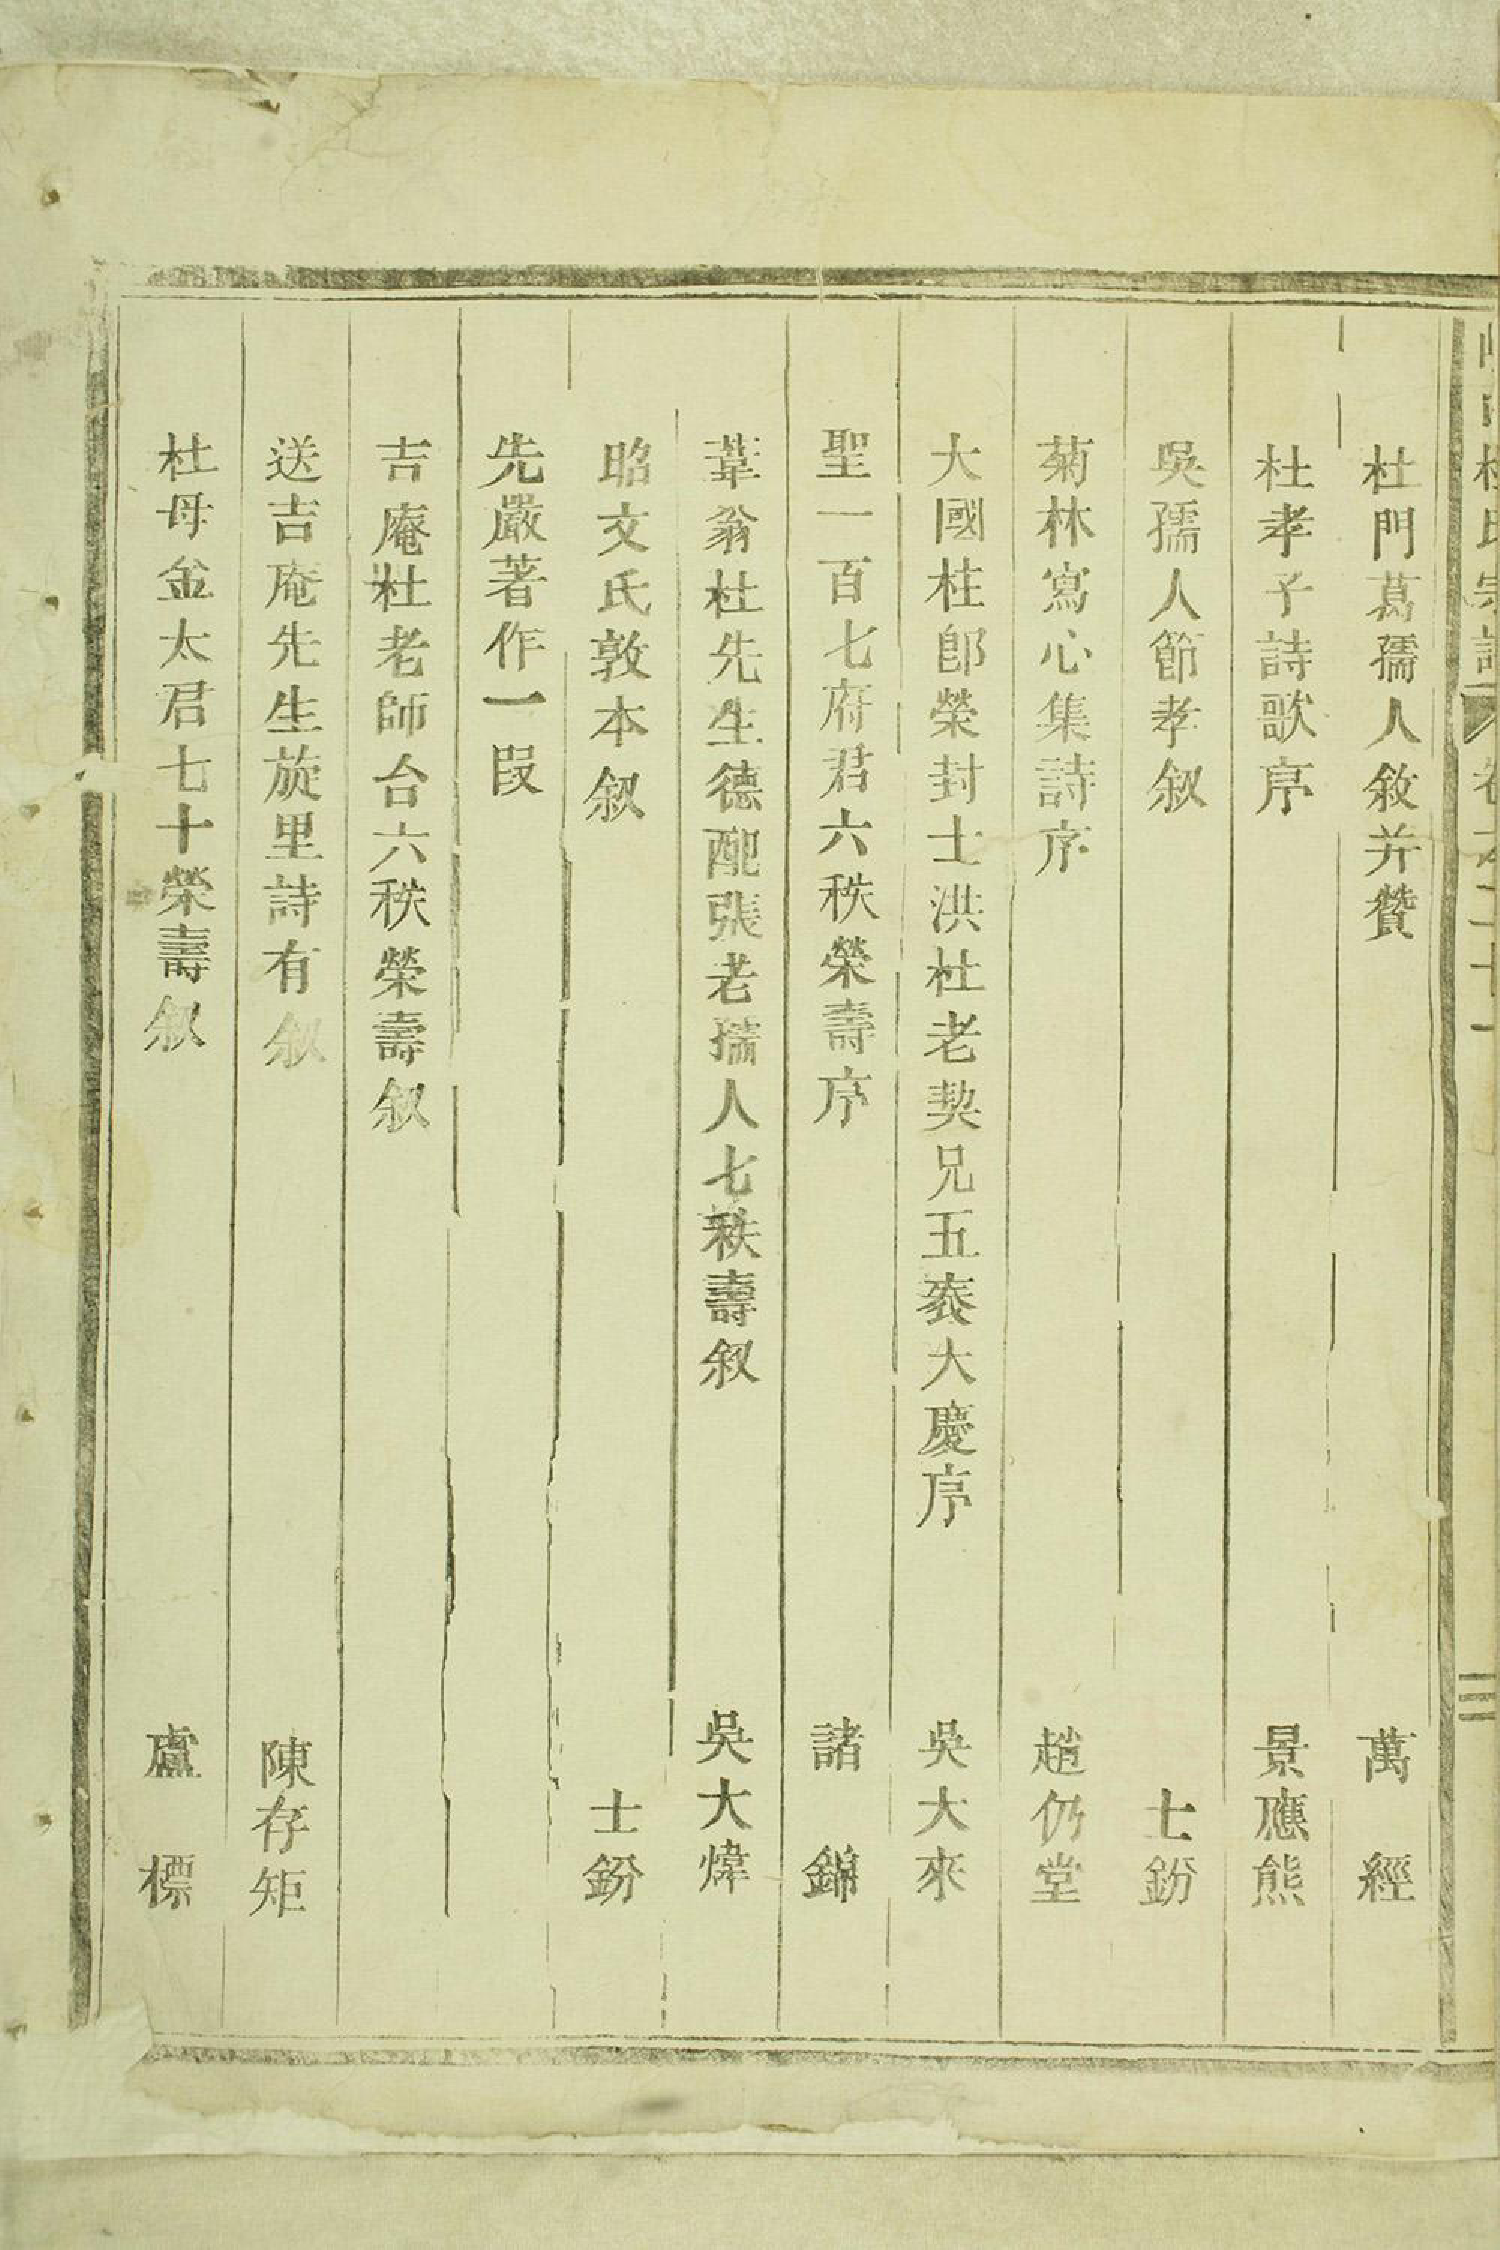 杜氏宗譜 卷之二十一 三
杜門葛孺人敘并贊 萬經
杜孝子詩歌序 景應熊
吳孺人節孝叙 士鈖
菊林寫心集詩序 趙仍堂
大國柱郎榮封士洪杜老契兄五袠大慶序 吳大來
聖一百七府君六秩榮壽序 諸錦
葦翁杜先生德配張老孺人七秩壽叙 吳大煒
昭文氏敦本叙 士鈖
先嚴著作一叚
吉庵杜老師台六秩榮壽叙
送吉庵先生旋里詩有叙 陳存矩
杜母金太君七十榮壽叙 盧標